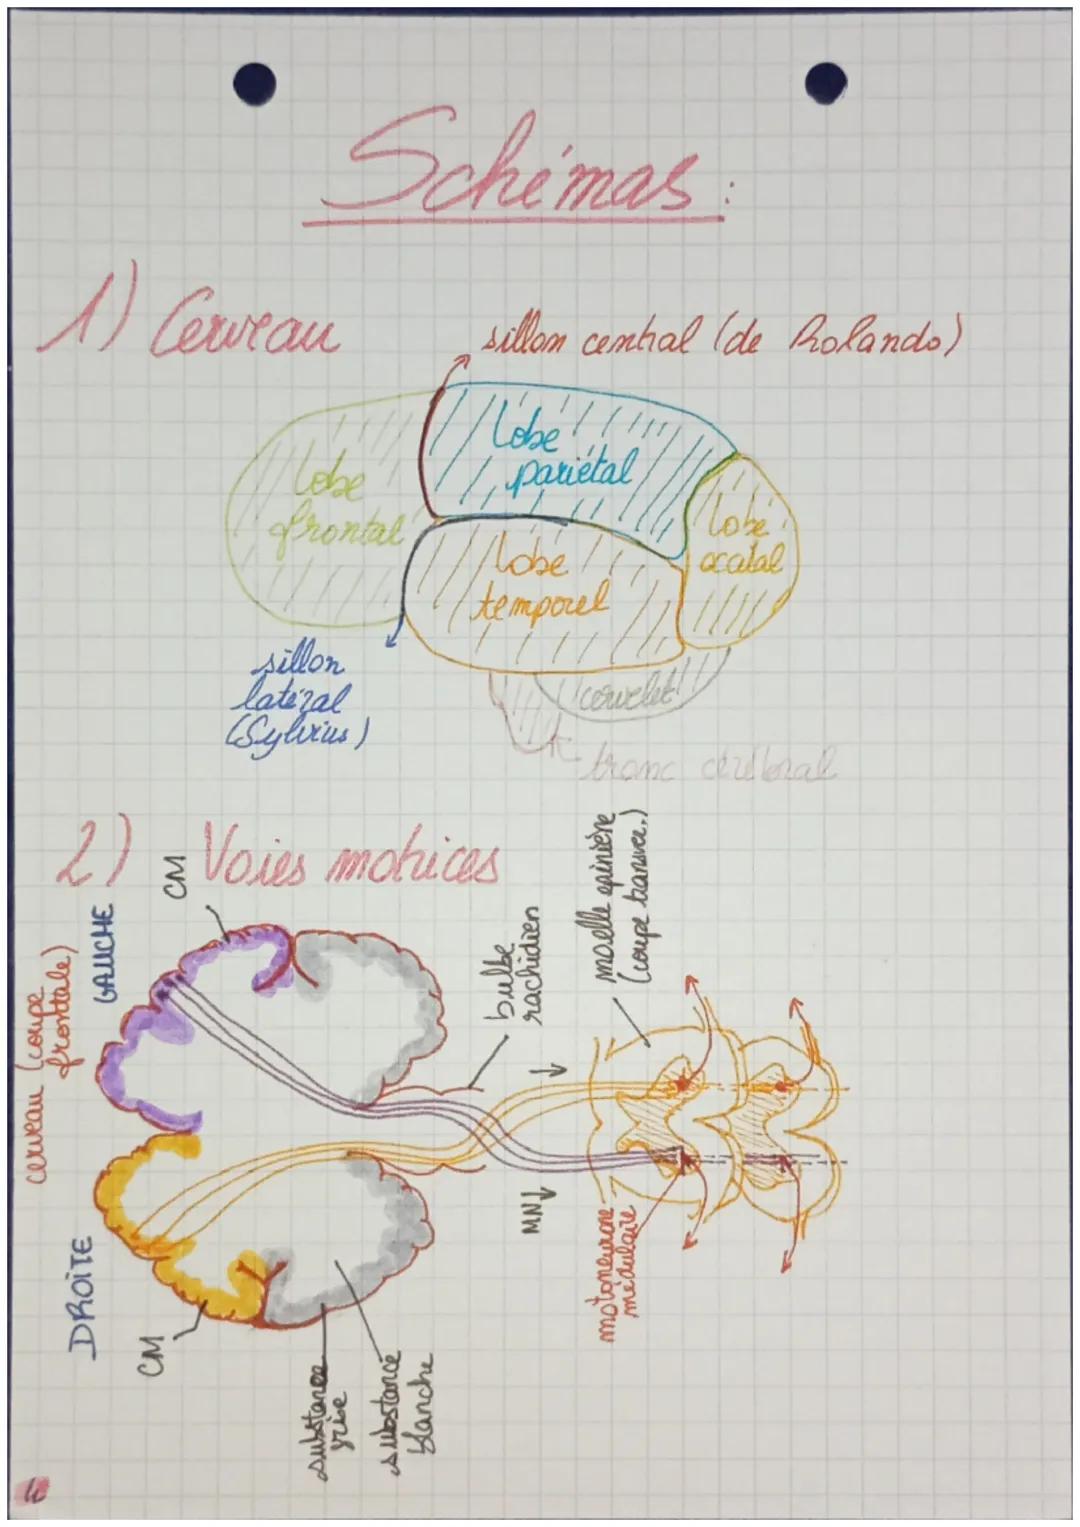 Schémas :
1) Cerveau
sillon central (de Rolando)
lobe
pariétal
lobe
frontal
lobe
occatal
lobe
temporel
sillon
latéral
(Sylvius)
cervelet
tronc cérébral
2) Voies motrices
cerveau (coupe
frontale)
GAUCHE
CM
bulbe
rachidien
moelle épinière
(coupe transver.)
DROITE
CM
MN
motoneurone
médulaire
substance
grise
substance
blanche